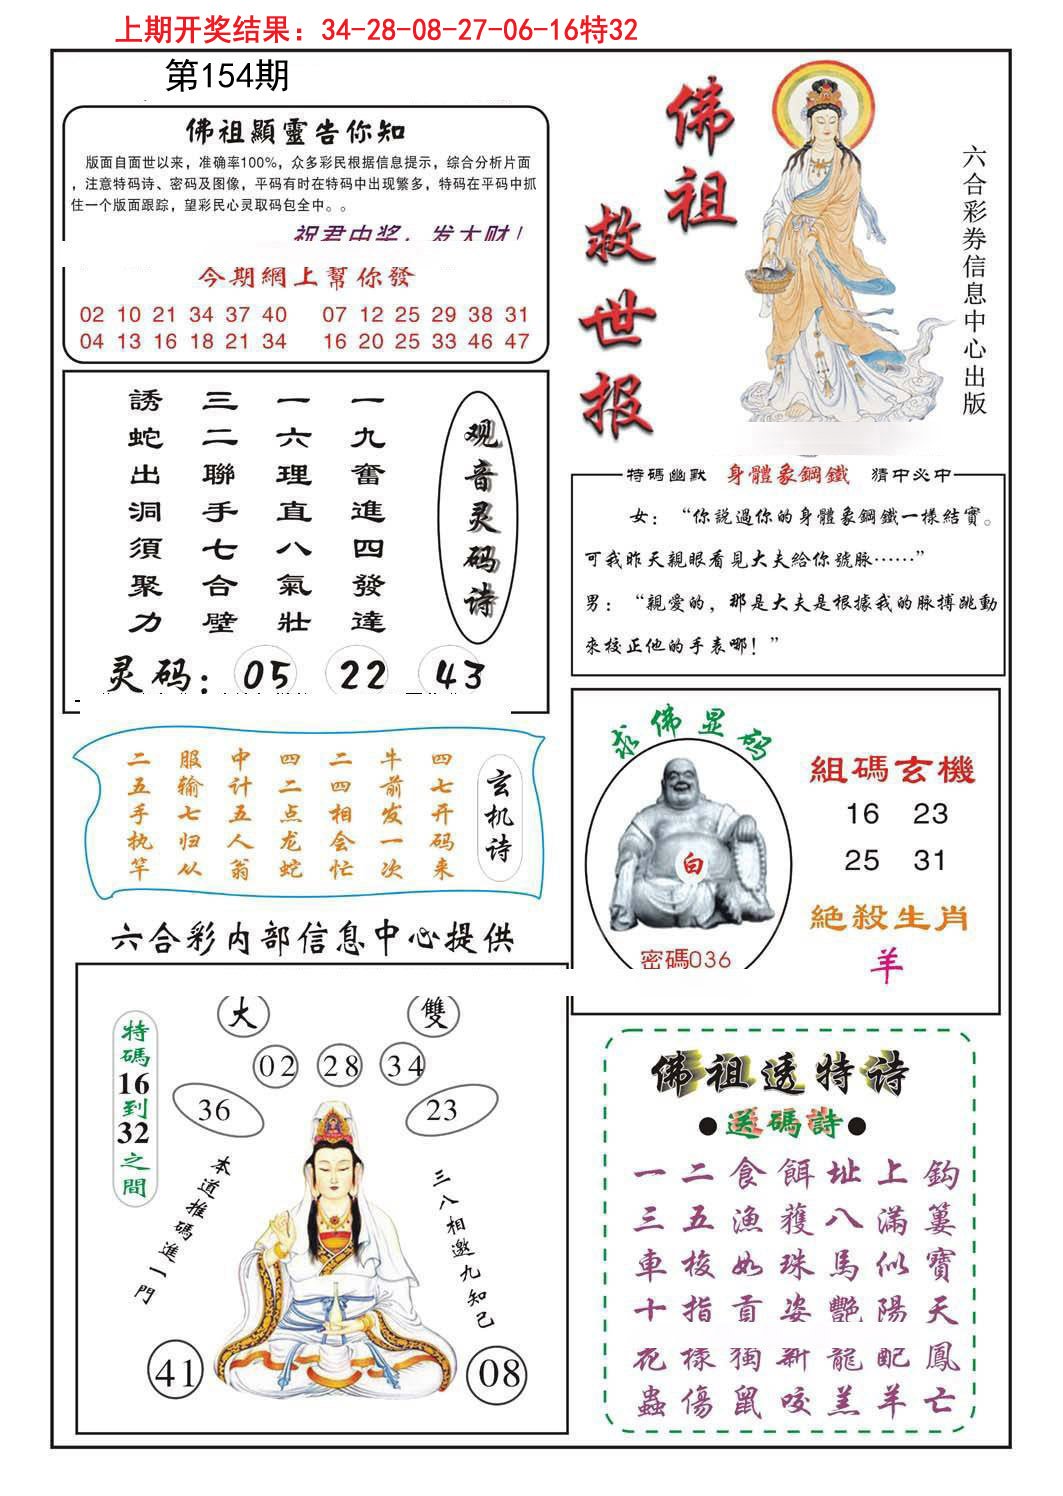 上期开奖结果：34-28-08-27-06-16特32
第154期
佛祖顯靈告你知
版面自面世以来，准确率100%，众多彩民根据信息提示，综合分析片面
，注意特码诗、密码及图像，平码有时在特码中出现繁多，特码在平码中抓
住一个版面跟踪，望彩民心灵取码包全中。。
祝君中奖，发大财！
今期網上幫你發
02 10 21 34 37 40 07 12 25 29 38 31
04 13 16 18 21 34 16 20 25 33 46 47
佛祖
救世报
六合彩券信息中心出版
观音灵码诗
一九奮進四發達
一六理直八氣壯
三二聯手七合壁
誘蛇出洞須聚力
灵码：05 22 43
特碼幽默 身體象鋼鐵 猜中必中
女：“你說過你的身體象鋼鐵一樣結實。
可我昨天親眼看見大夫給你號脈……”
男：“親愛的，那是大夫是根據我的脈搏跳動
來校正他的手表哪！”
玄机诗
四七开码来
牛前发一次
二四相会忙
四二点龙蛇
中计五人翁
服输七归从
二五手执竿
六合彩内部信息中心提供
求佛显码
白
密碼036
組碼玄機
16 23
25 31
絶殺生肖
羊
大 雙
02 28 34
36 23
特碼16到32之間
本道推碼進一門
三八相邀九知己
41 08
佛祖透特诗
●送碼詩●
一二食餌址上鈎
三五漁獲八滿簍
車梭如珠馬似寶
十指貢姿艷陽天
花樣獨新龍配鳳
蟲傷鼠咬羔羊亡